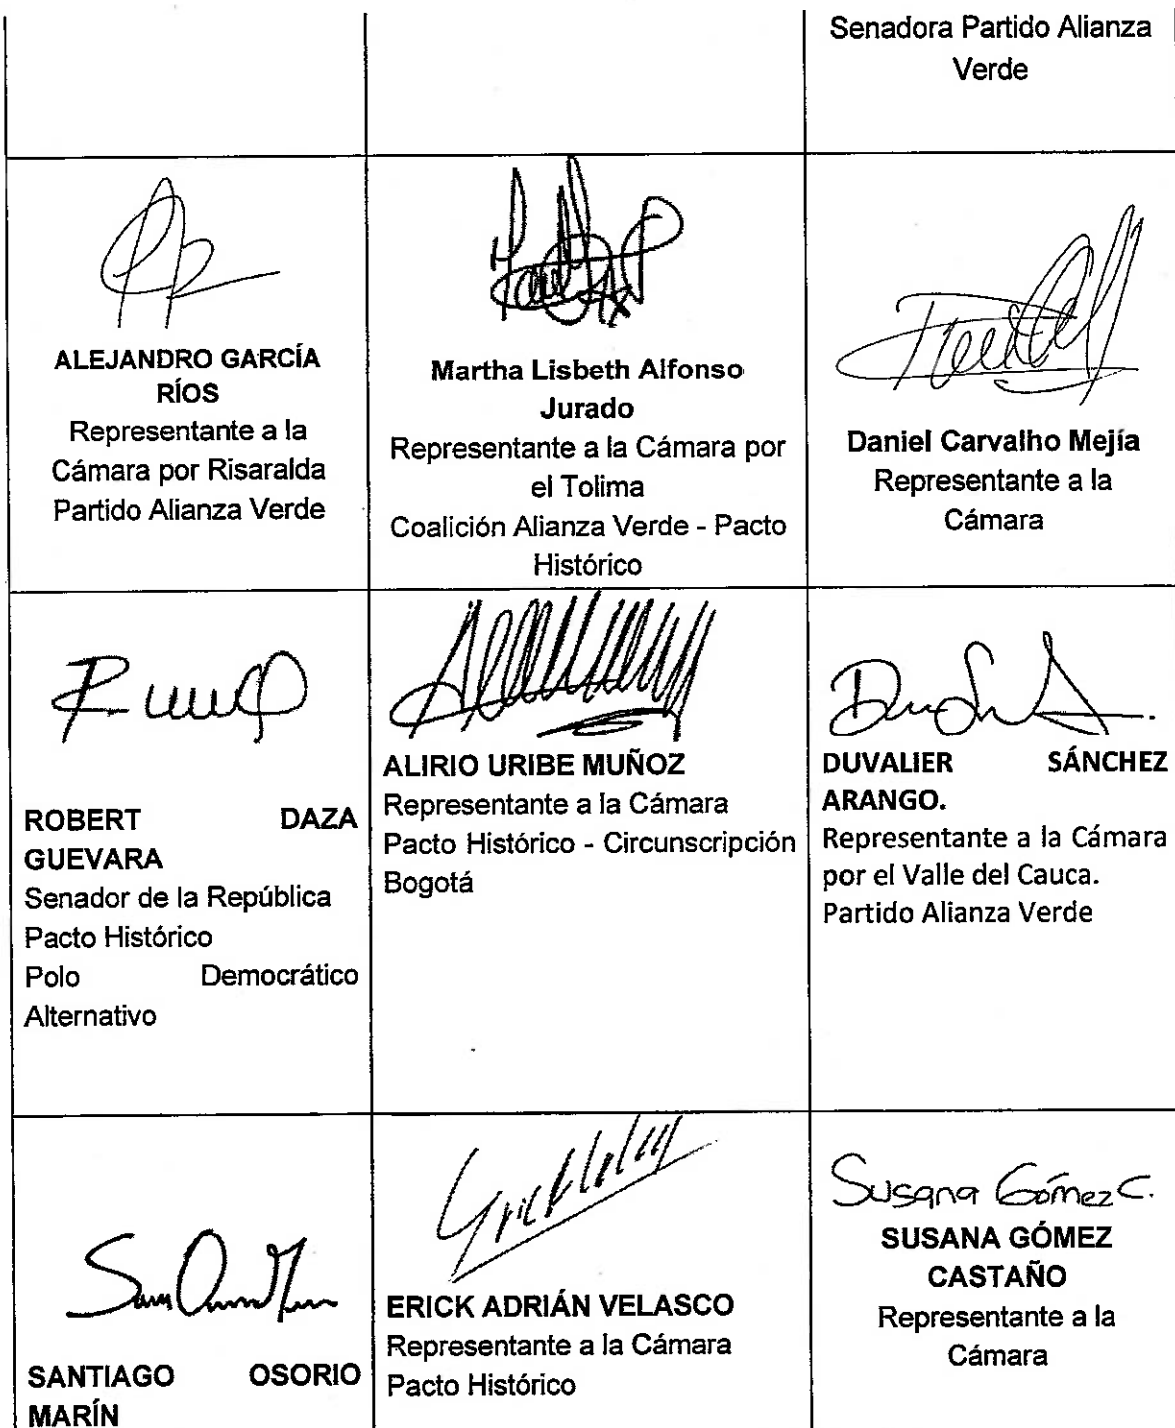 Senadora Partido Alianza
Verde
ALEJANDRO GARCÍA
RÍOS
Representante a la
Cámara por Risaralda
Partido Alianza Verde
Martha Lisbeth Alfonso
Jurado
Representante a la Cámara por
el Tolima
Coalición Alianza Verde - Pacto
Histórico
Daniel Carvalho Mejía
Representante a la
Cámara
ROBERT DAZA
GUEVARA
Senador de la República
Pacto Histórico
Polo Democrático
Alternativo
ALIRIO URIBE MUÑOZ
Representante a la Cámara
Pacto Histórico - Circunscripción
Bogotá
DUVALIER SÁNCHEZ
ARANGO.
Representante a la Cámara
por el Valle del Cauca.
Partido Alianza Verde
SANTIAGO OSORIO
MARÍN
ERICK ADRIÁN VELASCO
Representante a la Cámara
Pacto Histórico
Susana Gómez C.
SUSANA GÓMEZ
CASTAÑO
Representante a la
Cámara